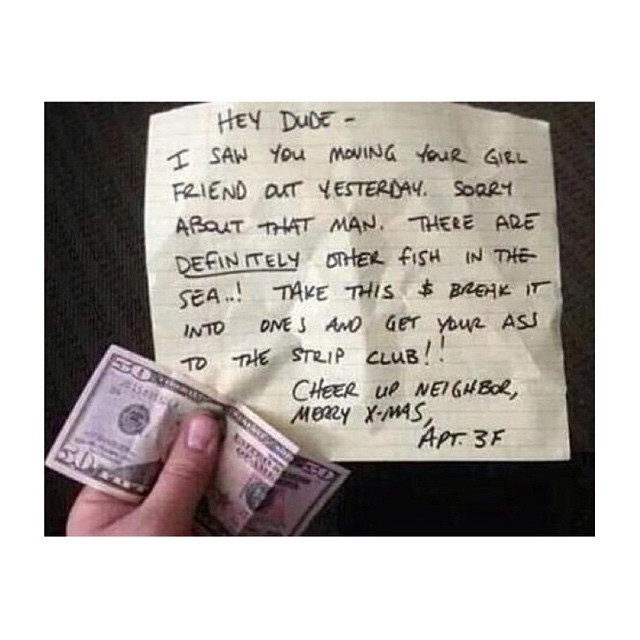 HEY DUDE -
I SAW YOU MOVING YOUR GIRL
FRIEND OUT YESTERDAY. SORRY
ABOUT THAT MAN. THERE ARE
DEFINITELY OTHER FISH IN THE
SEA..! TAKE THIS $ BREAK IT
INTO ONES AND GET YOUR ASS
TO THE STRIP CLUB!!
CHEER UP NEIGHBOR,
MERRY X-MAS,
APT. 3F
50
50
50